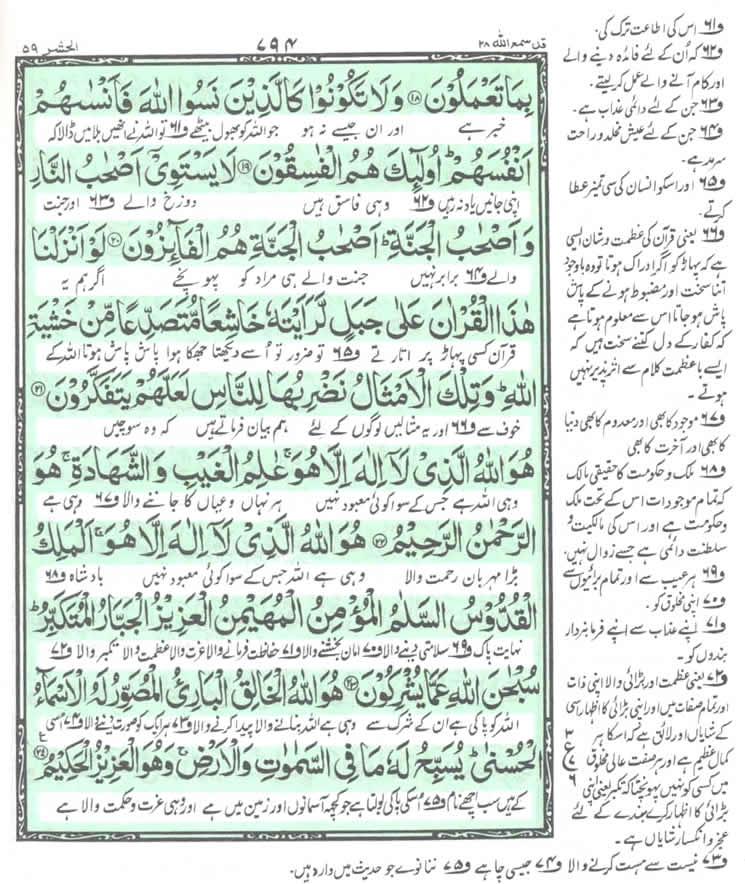 قد سمع الله ۲۸
۷۹۴
الحشر ۵۹
بِمَا تَعْمَلُوْنَ ۱۸ وَلَا تَكُوْنُوْا كَالَّذِيْنَ نَسُوا اللّٰهَ فَاَنْسٰىهُمْ
خبر ہے اور ان جیسے نہ ہو جو اللہ کو بھول بیٹھے و۶۱ تو اللہ نے انھیں بلا میں ڈالا کہ
اَنْفُسَهُمْ اُولٰٓئِكَ هُمُ الْفٰسِقُوْنَ ۱۹ لَا يَسْتَوِيْٓ اَصْحٰبُ النَّارِ
اپنی جانیں یاد نہ رہیں و۶۲ وہی فاسق ہیں دوزخ والے و۶۳ اور جنت
وَاَصْحٰبُ الْجَنَّةِ اَصْحٰبُ الْجَنَّةِ هُمُ الْفَآئِزُوْنَ ۲۰ لَوْ اَنْزَلْنَا
والے و۶۴ برابر نہیں جنت والے ہی مراد کو پہونچے اگر ہم یہ
هٰذَا الْقُرْاٰنَ عَلٰى جَبَلٍ لَّرَاَيْتَهٗ خَاشِعًا مُّتَصَدِّعًا مِّنْ خَشْيَةِ
قرآن کسی پہاڑ پر اتارتے و۶۵ تو ضرور تو اُسے دیکھتا جھکا ہوا پاش پاش ہوتا اللہ کے
اللّٰهِ وَتِلْكَ الْاَمْثَالُ نَضْرِبُهَا لِلنَّاسِ لَعَلَّهُمْ يَتَفَكَّرُوْنَ ۲۱
خوف سے و۶۶ اور یہ مثالیں لوگوں کے لئے ہم بیان فرماتے ہیں کہ وہ سوچیں
هُوَ اللّٰهُ الَّذِيْ لَآ اِلٰهَ اِلَّا هُوَ عٰلِمُ الْغَيْبِ وَالشَّهَادَةِ هُوَ
وہی اللہ ہے جس کے سوا کوئی معبود نہیں ہر نہاں و عیاں کا جاننے والا و۶۷ وہی ہے
الرَّحْمٰنُ الرَّحِيْمُ ۲۲ هُوَ اللّٰهُ الَّذِيْ لَآ اِلٰهَ اِلَّا هُوَ اَلْمَلِكُ
بڑا مہربان رحمت والا وہی ہے اللہ جس کے سوا کوئی معبود نہیں بادشاہ و۶۸
الْقُدُّوْسُ السَّلٰمُ الْمُؤْمِنُ الْمُهَيْمِنُ الْعَزِيْزُ الْجَبَّارُ الْمُتَكَبِّرُ
نہایت پاک و۶۹ سلامتی دینے والا و۷۰ امان بخشنے والا و۷۱ حفاظت فرمانے والا عزت والا عظمت والا تکبر والا و۷۲
سُبْحٰنَ اللّٰهِ عَمَّا يُشْرِكُوْنَ ۲۳ هُوَ اللّٰهُ الْخَالِقُ الْبَارِئُ الْمُصَوِّرُ لَهُ الْاَسْمَآءُ
اللہ کو پاکی ہے ان کے شرک سے وہی ہے اللہ بنانے والا پیدا کرنے والا و۷۳ ہر ایک کو صورت دینے والا و۷۴ اسی
الْحُسْنٰى يُسَبِّحُ لَهٗ مَا فِي السَّمٰوٰتِ وَالْاَرْضِ وَهُوَ الْعَزِيْزُ الْحَكِيْمُ ۲۴
کے ہیں سب اچھے نام و۷۵ اسکی پاکی بولتا ہے جو کچھ آسمانوں اور زمین میں ہے اور وہی عزت و حکمت والا ہے
و۶۱ اس کی اطاعت ترک کی۔
و۶۲ کہ اُن کے لئے فائدہ دینے والے
اور کام آنے والے عمل کر لیتے۔
و۶۳ جن کے لئے دائمی عذاب ہے۔
و۶۴ جن کے لئے عیش مخلد و راحت
سرمد ہے۔
و۶۵ اور اسکو انسان کی سی تمیز عطا
کرتے۔
و۶۶ یعنی قرآن کی عظمت و شان ایسی
ہے کہ پہاڑ کو اگر ادراک ہوتا تو وہ باوجود
اتنا سخت اور مضبوط ہونے کے پاش
پاش ہو جاتا اس سے معلوم ہوتا ہے
کہ کفار کے دل کتنے سخت ہیں کہ
ایسے با عظمت کلام سے اثر پذیر نہیں
ہوتے۔
و۶۷ موجود کا بھی اور معدوم کا بھی دنیا
کا بھی اور آخرت کا بھی
و۶۸ ملک و حکومت کا حقیقی مالک
کہ تمام موجودات اس کے تحت ملک
و حکومت ہے اور اس کی مالکیت و
سلطنت دائمی ہے جسے زوال نہیں۔
و۶۹ ہر عیب سے اور تمام برائیوں سے
و۷۰ اپنی مخلوق کو۔
و۷۱ اپنے عذاب سے اپنے فرمانبردار
بندوں کو۔
و۷۲ یعنی عظمت اور بڑائی والا اپنی ذات
اور تمام صفات میں اور اپنی بڑائی کا اظہار اسی
کے شایاں اور لائق ہے کہ اسکا ہر
کمال عظیم ہے اور ہر صفت عالی مخلوق
میں کسی کو نہیں پہونچتا کہ تکبر یعنی اپنی
بڑائی کا اظہار کرے بندے کے لئے
عجز و انکسار شایاں ہے۔
و۷۳ نیست سے ہست کرنے والا و۷۴ جیسی چاہے و۷۵ ننانوے جو حدیث میں وارد ہیں۔